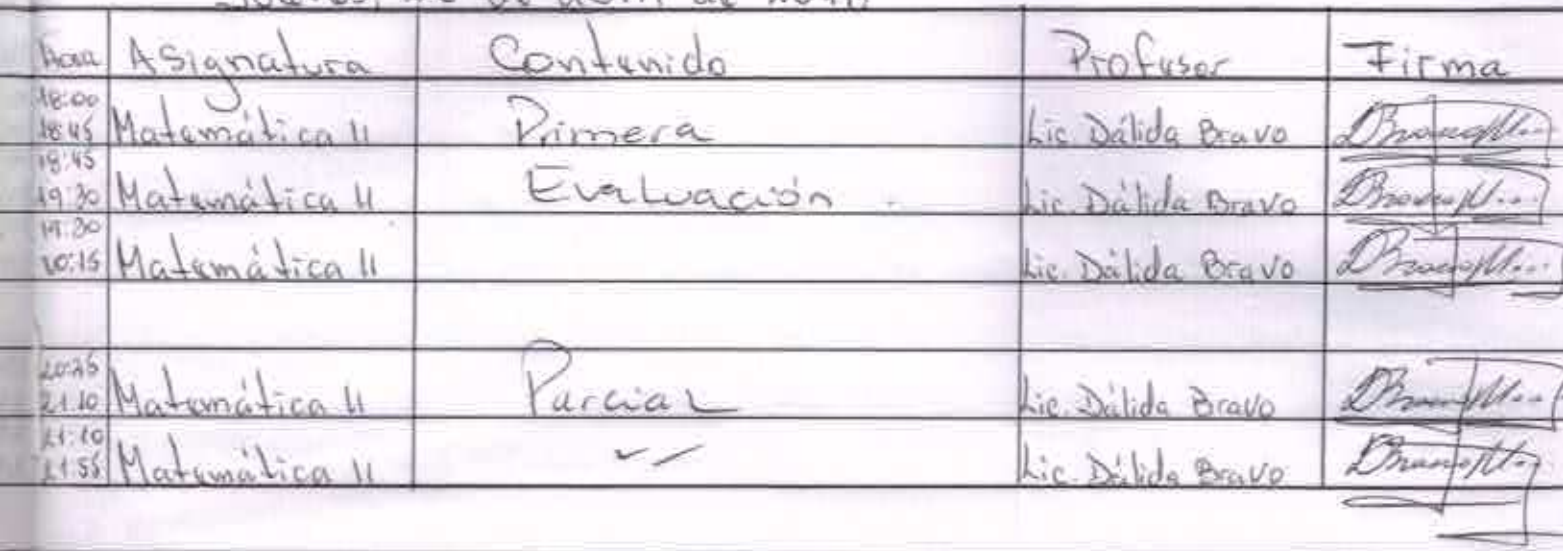 de abril de
Hora Asignatura Contenido Profesor Firma
18:00
18:45 Matemática II Primera Lic. Dálida Bravo
18:45
19:30 Matemática II Evaluación Lic. Dálida Bravo
19:30
20:15 Matemática II Lic. Dálida Bravo
20:25
21:10 Matemática II Parcial Lic. Dálida Bravo
21:10
21:55 Matemática II Lic. Dálida Bravo